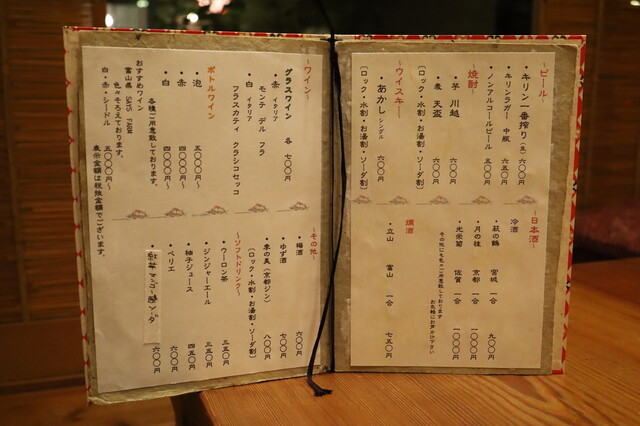 ~ビール~
・キリン一番搾り(生) 六〇〇円
・キリンラガー 中瓶 六五〇円
・ノンアルコールビール 五〇〇円
~焼酎~
・芋 川越 六〇〇円
・麦 天盃 六〇〇円
(ロック・水割・お湯割・ソーダ割)
~ウイスキー~
・あかし シングル 六〇〇円
(ロック・水割・お湯割・ソーダ割)
~日本酒~
冷酒
・萩の鶴 宮城 一合 九〇〇円
・月の桂 京都 一合 一〇〇〇円
・光栄菊 佐賀 一合 一〇〇〇円
その他にも色々ご用意致しております
お気軽にお声がけ下さい
燗酒
・立山 富山 一合 七五〇円
~ワイン~
グラスワイン 各 七〇〇円
・赤 イタリア
モンテ デル フラ
・白 イタリア
フラスカティ クラシコセッコ
ボトルワイン
・泡 五〇〇〇円~
・赤 四〇〇〇円~
・白 四〇〇〇円~
各種ご用意致しております。
おすすめワイン
富山県 SAYS FARM
色々そろえております。
白・赤・シードル 五〇〇〇円~
表示金額は税抜金額でございます。
~その他~
・梅酒 六〇〇円
・ゆず酒 七〇〇円
・季の美(京都ジン) 八〇〇円
(ロック・水割・お湯割・ソーダ割)
~ソフトドリンク~
・ウーロン茶 三五〇円
・ジンジャーエール 三五〇円
・柚子ジュース 四五〇円
・ペリエ 六〇〇円
六〇〇円